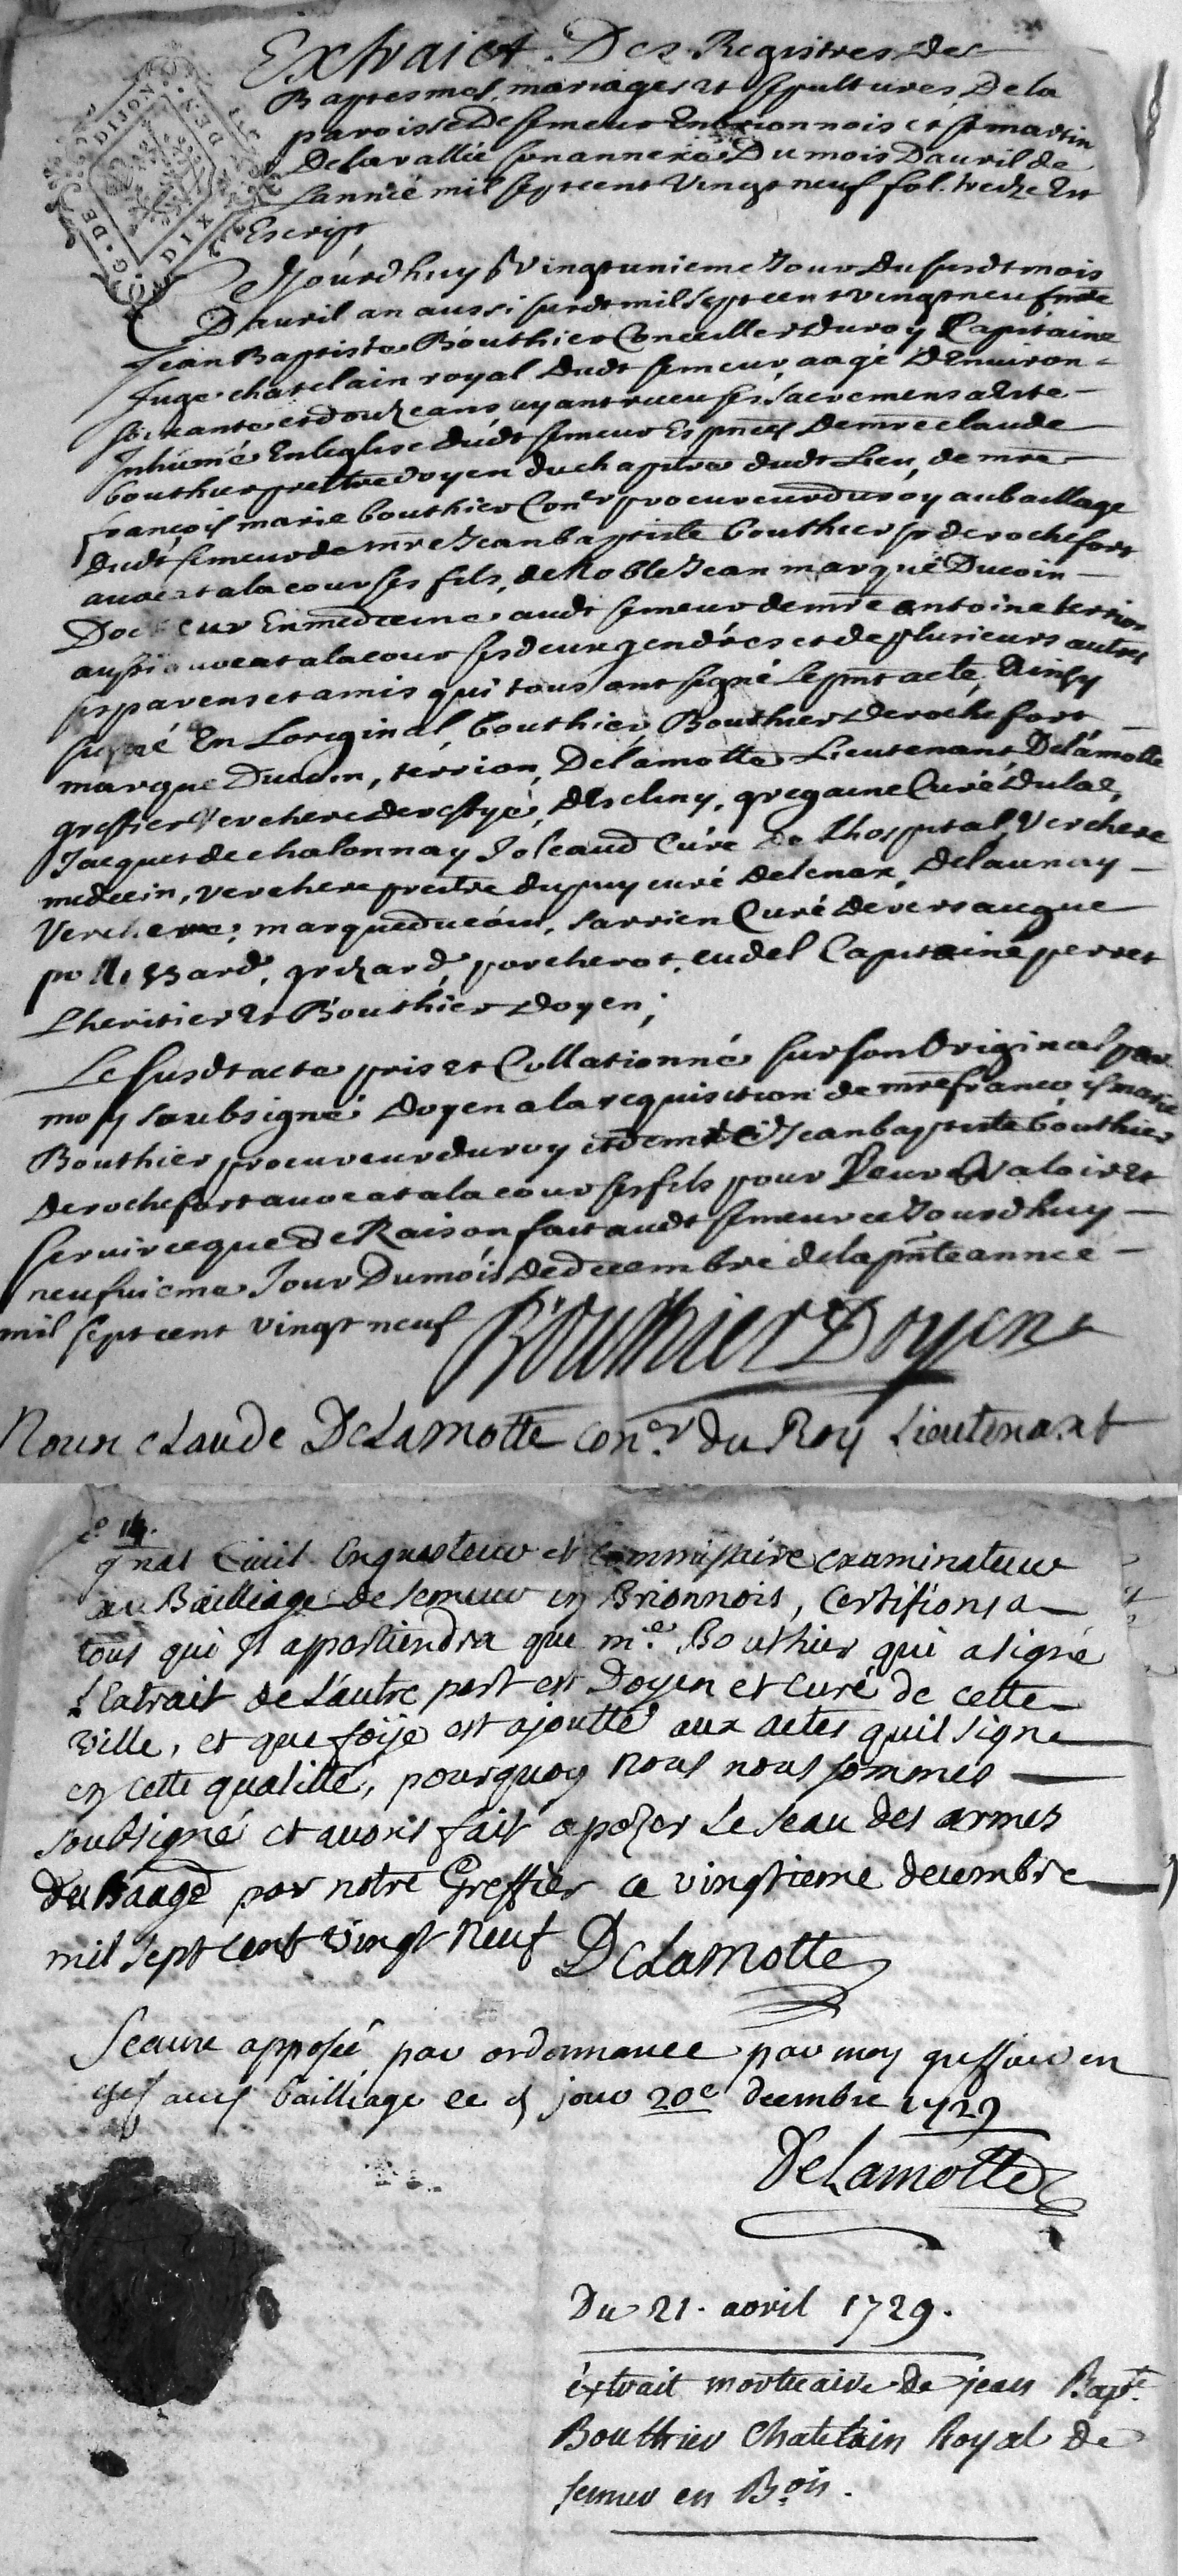 G. DE DIJON
DIX DEN
Extraict Des Registres des
Baptesmes, mariages et sepultures, De la
paroisse De semeur En brionnois et st martin
De la vallée son annexe Du mois Dauril de
Lannée mil sept cent Vingt neuf fol. treize Est
Escript
Ce Jourdhuy Vingtunieme Jour du susdt mois
Dauril an aussi susdt mil sept cent vingt neuf mre
Jean Baptiste Bouthier Conceiller du roy Capitaine
Juge chatelain royal dudt semeur, aagé DEnuiron
soixante et douze ans ayant receu ses sacremens a Este
Inhumé En leglise dudt semeur Es pnces de mre claude
bouthier prestre doyen du chapitre dudt Lieu, de mre
françois marie bouthier Coner procureur du roy au baillage
dudt semeur de mre Jean baptiste bouthier sr de rochefort
auocat a la cour ses fils, de Noble Jean marque Ducoin
Docteur En medecine audt semeur de mre antoine terrion
aussi auocat a la cour ses deux gendres et de plusieurs autres
ses parens et amis qui tous ont signé le pnt acte, Ainsy
signé En Loriginal, bouthier, Bouthier de rochefort
marque Ducoin, terrion, Delamotte Lieutenant, Delamotte
greffier Verchere de reffye, Descluny, gregaine Curé Dulac,
Jacquet de chalonnay Joleaud Curé de Lhospital, Verchere
medecin, verchere prestre dupuy curé de lenax, Delaunay
Verchere, marque ducoin, sarrien Curé de versaugue
pollissard, grizard, porcherot, cudel Capitaine perret
Lheritier et Bouthier doyen;
Le susdt acte pris et Collationné sur son Original par
moy soubsigné doyen a la requisition de mre françois marie
Bouthier procureur du roy et de mre Jean baptiste bouthier
de rochefort auocat a la cour ses fils pour Leur Valoir et
seruir ce que de Raison fait audt semeur ce Jourdhuy
neufuieme Jour Du mois de decembre de la pnte annee
mil sept cent vingt neuf Bouthier Doyen
Nous cLaude DeLamotte coner du Roy Lieutenant
gnal Ciuil Enquesteur et commissaire examinateur
au Bailliage de semeur en Brionnois, Certifions a
tous qui Il appartiendra que me Bouthier qui a signé
L'extrait de L'autre part est Doyen et Curé de cette
ville, et que foije est ajoutté aux actes quil signe
en cette qualitté, pourquoy Nous nous sommes
soubsigné et auons fait apozer Le seau des armes
du Baage par notre Greffier ce vingtieme decembre
mil sept cent vingt neuf DeLamotte
Sceaux apposée par ordonnance par moy greffier en
chef audt bailliage ce dt jour 20e decembre 1729
DeLamotte
Du 21. avril 1729.
éxtrait mortuaire de jean Bapte
Bouthier Chatelain Royal de
semur en Bois.